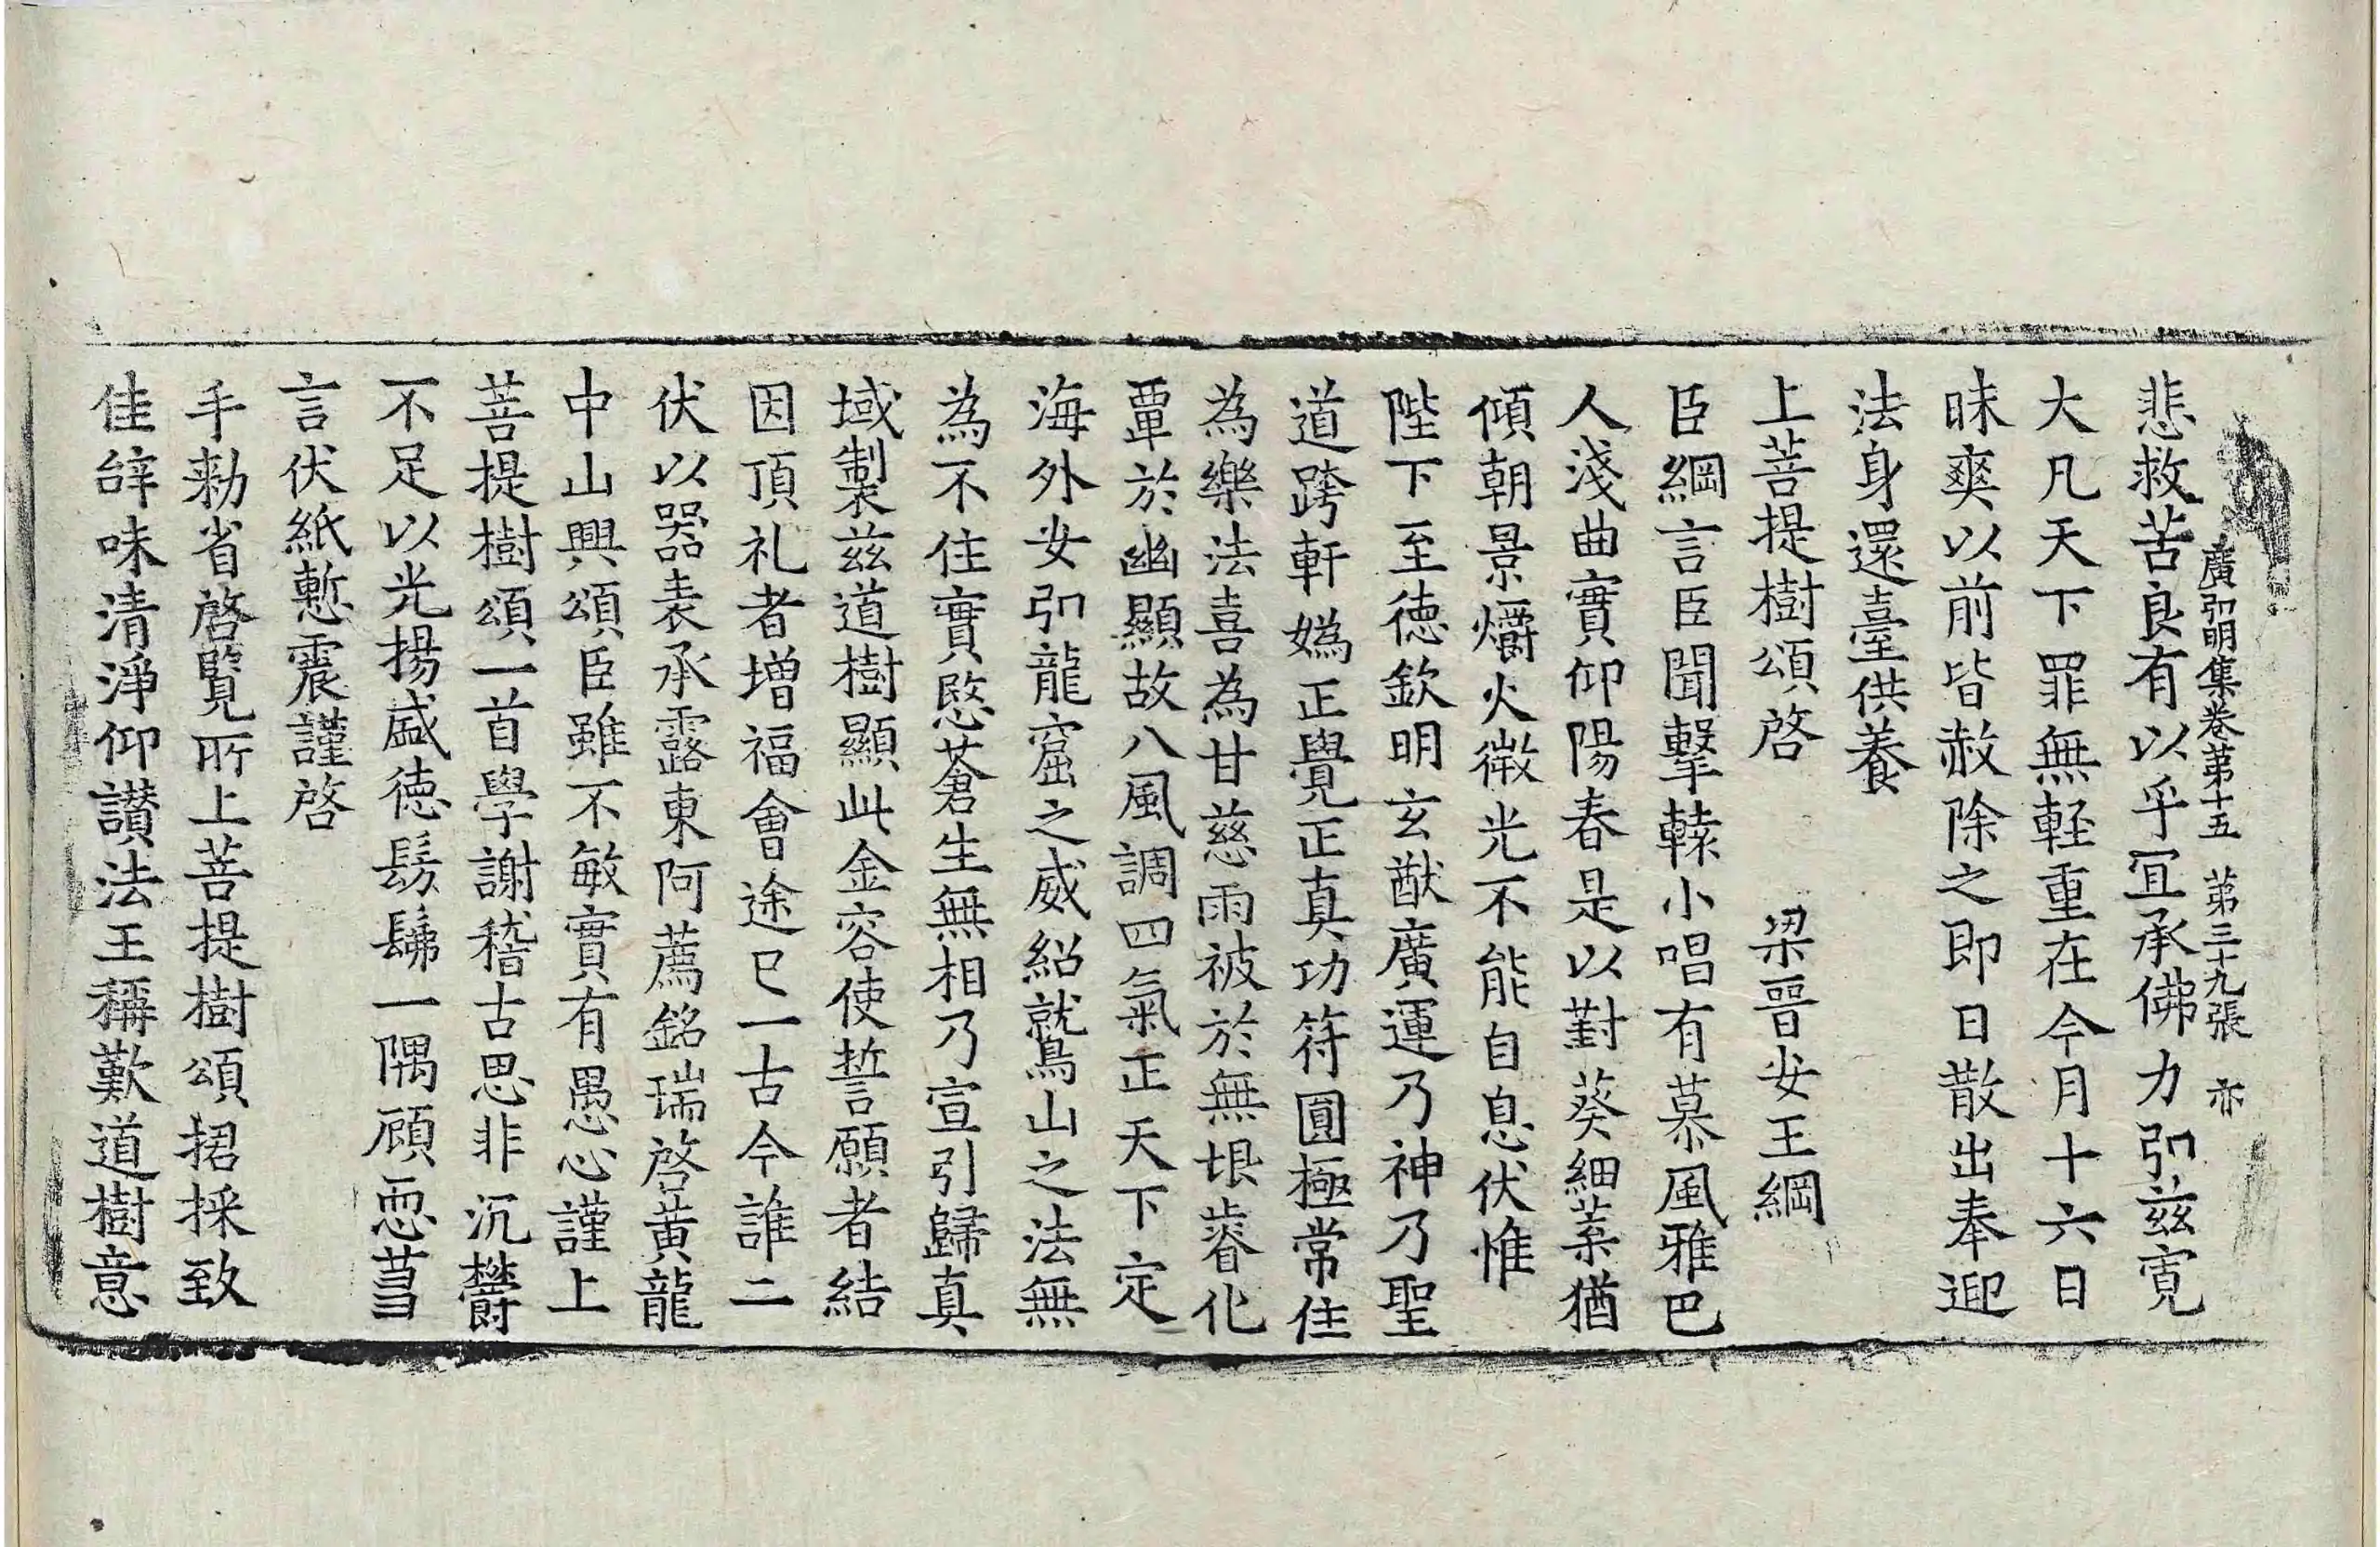 廣弘明集卷苐十五 苐三十九張 亦
悲救苦良有以乎冝承佛力弘兹寛
大凡天下罪無軽重在今月十六日
昧爽以前皆赦除之即日散出奉迎
法身還臺供養
上菩提樹頌啓 梁晉安王綱
臣綱言臣聞擊轅小唱有慕風雅巴
人淺曲實仰陽春是以對葵細菜猶
傾朝景爝火微光不能自息伏惟
陛下至徳欽明玄猷廣運乃神乃聖
道跨軒媯正覺正真功符圓極常住
為樂法喜為甘慈雨被於無垠睿化
覃於幽顯故八風調四氣正天下定
海外安弘龍窟之威紹就鳥山之法無
為不住實愍蒼生無相乃宣引歸真
域製兹道樹顯此金容使誓願者結
因頂礼者增福會途已一古今誰二
伏以器表承露東阿薦銘瑞啓黄龍
中山興頌臣雖不敏實有愚心謹上
菩提樹頌一首學謝稽古思非沉欝
不足以光揚盛徳髣髴一隅顧恧蒭
言伏紙慙震謹啓
手勑省啓覽所上菩提樹頌捃採致
佳辝味清淨仰讃法王稱歎道樹意